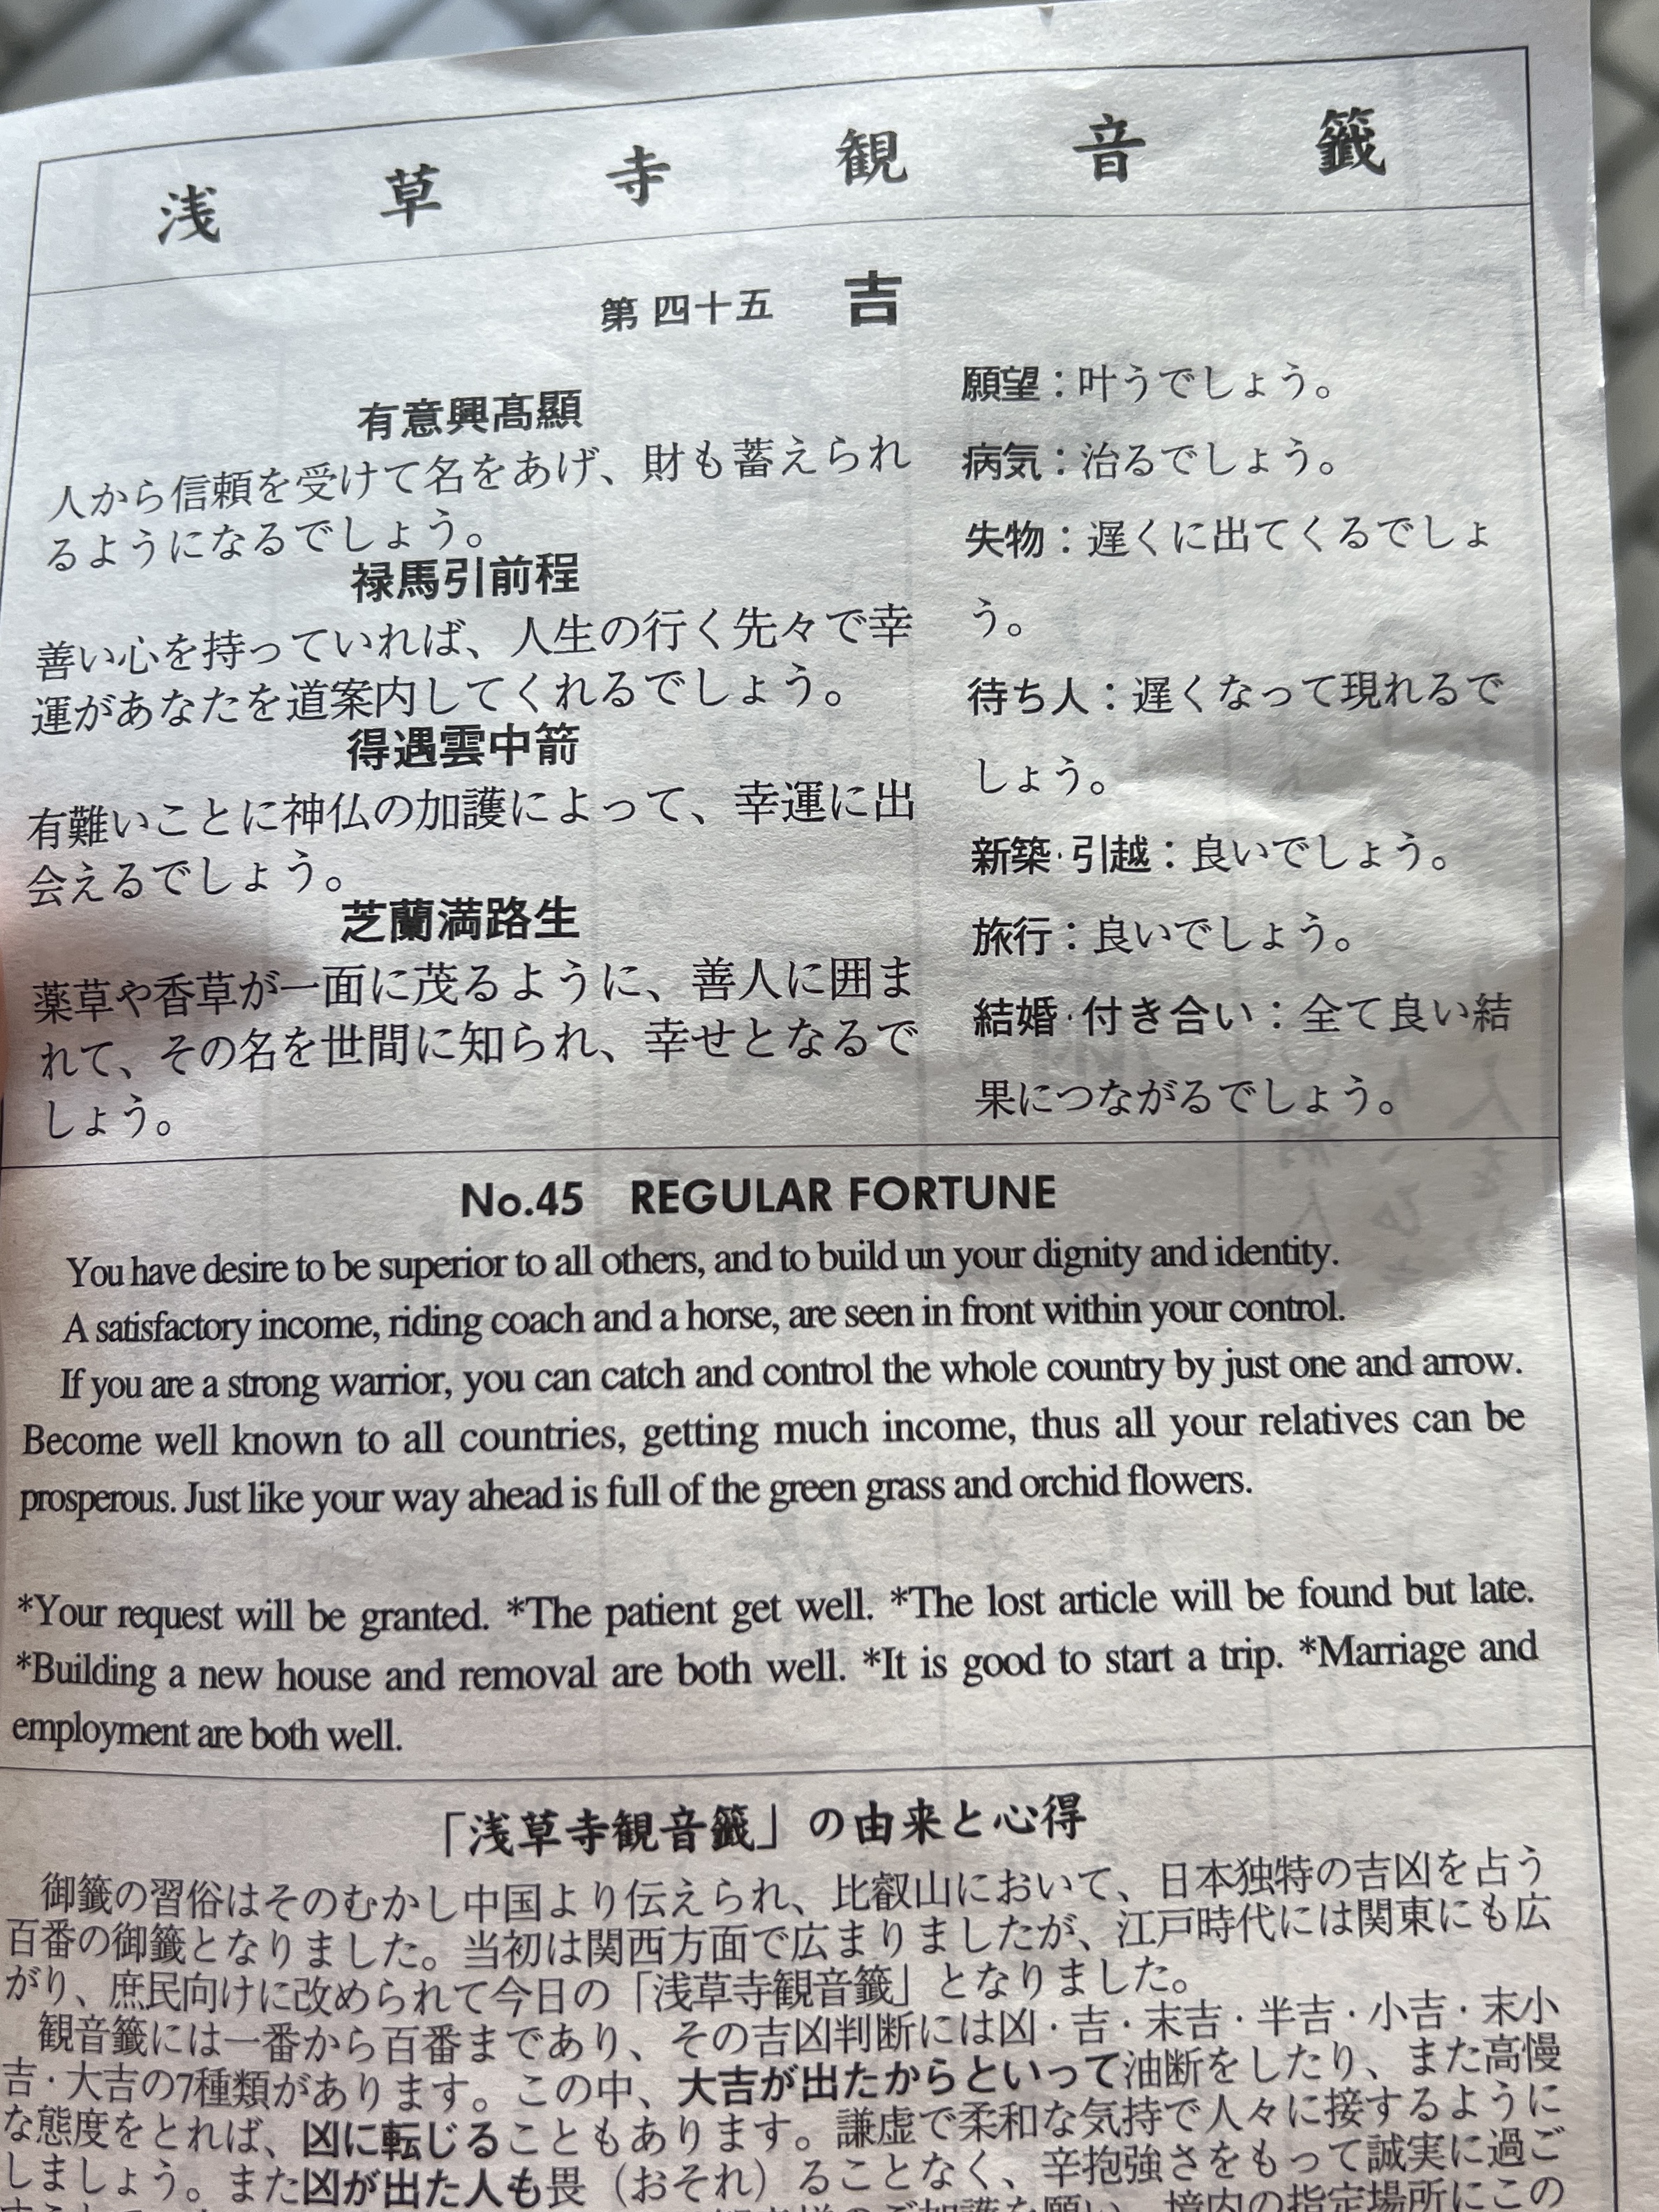 浅草寺観音籤
第四十五 吉
有意興髙顯
人から信頼を受けて名をあげ、財も蓄えられ
るようになるでしょう。
禄馬引前程
善い心を持っていれば、人生の行く先々で幸
運があなたを道案内してくれるでしょう。
得遇雲中箭
有難いことに神仏の加護によって、幸運に出
会えるでしょう。
芝蘭満路生
薬草や香草が一面に茂るように、善人に囲ま
れて、その名を世間に知られ、幸せとなるで
しょう。
願望：叶うでしょう。
病気：治るでしょう。
失物：遅くに出てくるでしょ
う。
待ち人：遅くなって現れるで
しょう。
新築·引越：良いでしょう。
旅行：良いでしょう。
結婚·付き合い：全て良い結
果につながるでしょう。
No.45 REGULAR FORTUNE
You have desire to be superior to all others, and to build un your dignity and identity.
A satisfactory income, riding coach and a horse, are seen in front within your control.
If you are a strong warrior, you can catch and control the whole country by just one and arrow.
Become well known to all countries, getting much income, thus all your relatives can be
prosperous. Just like your way ahead is full of the green grass and orchid flowers.
*Your request will be granted. *The patient get well. *The lost article will be found but late.
*Building a new house and removal are both well. *It is good to start a trip. *Marriage and
employment are both well.
「浅草寺観音籤」の由来と心得
御籤の習俗はそのむかし中国より伝えられ、比叡山において、日本独特の吉凶を占う
百番の御籤となりました。当初は関西方面で広まりましたが、江戸時代には関東にも広
がり、庶民向けに改められて今日の「浅草寺観音籤」となりました。
観音籤には一番から百番まであり、その吉凶判断には凶·吉·末吉·半吉·小吉·末小
吉·大吉の7種類があります。この中、大吉が出たからといって油断をしたり、また高慢
な態度をとれば、凶に転じることもあります。謙虚で柔和な気持で人々に接するように
しましょう。また凶が出た人も畏（おそれ）ることなく、辛抱強さをもって誠実に過ご
のご加護を願い、境内の指定場所にこの